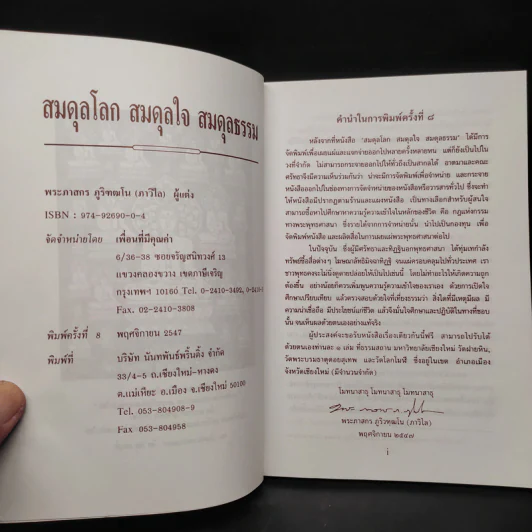 สมดุลโลก สมดุลใจ สมดุลธรรม
พระภาสกร ภูริวฑฺฒโน (ภาวิไล) ผู้แต่ง
ISBN : 974-92690-0-4
จัดจำหน่ายโดย เพื่อนที่มีคุณค่า
6/36-38 ซอยจรัญสนิทวงศ์ 13
แขวงคลองขวาง เขตภาษีเจริญ
กรุงเทพฯ 10160 Tel. 0-2410-3402, 0-2410-
Fax. 02-2410-3808
พิมพ์ครั้งที่ 8 พฤศจิกายน 2547
พิมพ์ที่ บริษัท นันทพันธ์พริ้นติ้ง จำกัด
33/4-5 ถ.เชียงใหม่-หางดง
ต.แม่เหียะ อ.เมือง จ.เชียงใหม่ 50100
Tel. 053-804908-9
Fax 053-804958
คำนำในการพิมพ์ครั้งที่ ๘
หลังจากที่หนังสือ "สมดุลโลก สมดุลใจ สมดุลธรรม" ได้มีการ
จัดพิมพ์เพื่อเผยแผ่และแจกจ่ายออกไปหลายครั้งหลายหน แต่ก็ยังเป็นไปใน
วงที่จำกัด ไม่สามารถกระจายออกไปให้ทั่วถึงเป็นสากลได้ อาตมาและคณะ
ศรัทธาจึงมีความเห็นร่วมกันว่า น่าจะมีการจัดพิมพ์เพื่อจำหน่าย และกระจาย
หนังสือออกไปในช่องทางการจัดจำหน่ายของหนังสือหรือวารสารทั่วไป ซึ่งจะทำ
ให้หนังสือมีปรากฏตามร้านและแผงหนังสือ เป็นทางเลือกสำหรับผู้สนใจ
สามารถซื้อหาไปศึกษาหาความรู้ความเข้าใจในหลักของชีวิต คือ กฎแห่งกรรม
ทางพระพุทธศาสนา ซึ่งรายได้จากการจำหน่ายนั้น นำไปเป็นกองทุน เพื่อ
จัดพิมพ์หนังสือ และผลิตสื่อในการเผยแผ่พระพุทธศาสนาต่อไป
ในปัจจุบัน ซึ่งผู้มีศรัทธาและทิฏฐินอกพุทธศาสนา ได้ทุ่มเทกำลัง
ทรัพย์ซื้อสื่อต่างๆ โฆษณาลัทธิมิจฉาทิฏฐิ จนแผ่ครอบคลุมไปทั่วประเทศ เรา
ชาวพุทธคงจะไม่นิ่งดูดายปล่อยให้เป็นไปเช่นนี้ โดยไม่ทำอะไรให้เกิดความถูก
ต้องขึ้น อย่างน้อยก็ควรเพิ่มพูนความรู้ความเข้าใจของเราเอง ด้วยการเปิดใจ
ศึกษาเปรียบเทียบ แล้วตรวจสอบด้วยใจที่เที่ยงธรรมว่า สิ่งใดที่มีเหตุมีผล มี
ความน่าเชื่อถือ มีประโยชน์แก่ชีวิต แล้วจึงมั่นใจศึกษาและปฏิบัติในทางที่ชอบ
นั้น จนเห็นผลด้วยตนเองอย่างแท้จริง
ผู้ประสงค์จะขอรับหนังสือเรื่องเดียวกันนี้ฟรี สามารถไปรับได้
ด้วยตนเองท่านละ ๑ เล่ม ที่ธรรมสถาน มหาวิทยาลัยเชียงใหม่ วัดฝายหิน,
วัดพระบรมธาตุดอยสุเทพ และวัดโลกโมฬี ซึ่งอยู่ในเขต อำเภอเมือง
จังหวัดเชียงใหม่ (มีจำนวนจำกัด)
โมทนาสาธุ โมทนาสาธุ โมทนาสาธุ
พระภาสกร ภูริวฑฺฒโน (ภาวิไล)
พฤศจิกายน ๒๕๔๗
i